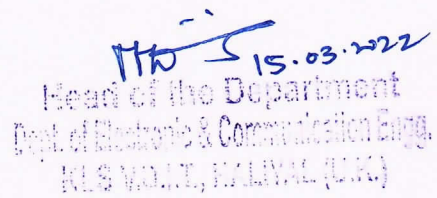 15.03.2022
Head of the Department
Dept. of Electronic & Communication Engg.
KLS V.D.I.T., HALIYAL (U.K.)